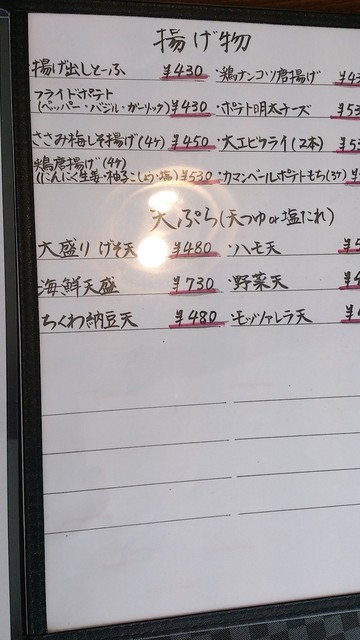 揚げ物
揚げ出しとーふ ¥430 ・鶏ナンコツ唐揚げ ¥4
フライドポテト
(ペッパー・バジル・ガーリック) ¥430 ・ポテト明太チーズ ¥53
ささみ梅しそ揚げ(4ケ) ¥450 ・大エビフライ(2本) ¥53
鶏唐揚げ(4ケ)
(にんにく生姜・柚子こしょう・塩) ¥530 ・カマンベールポテトもち(3ケ) ¥
天ぷら(天つゆor塩だれ)
大盛り げそ天 ¥480 ・ハモ天 ¥5
海鮮天盛 ¥730 ・野菜天 ¥4
ちくわ納豆天 ¥480 ・モッツァレラ天 ¥4